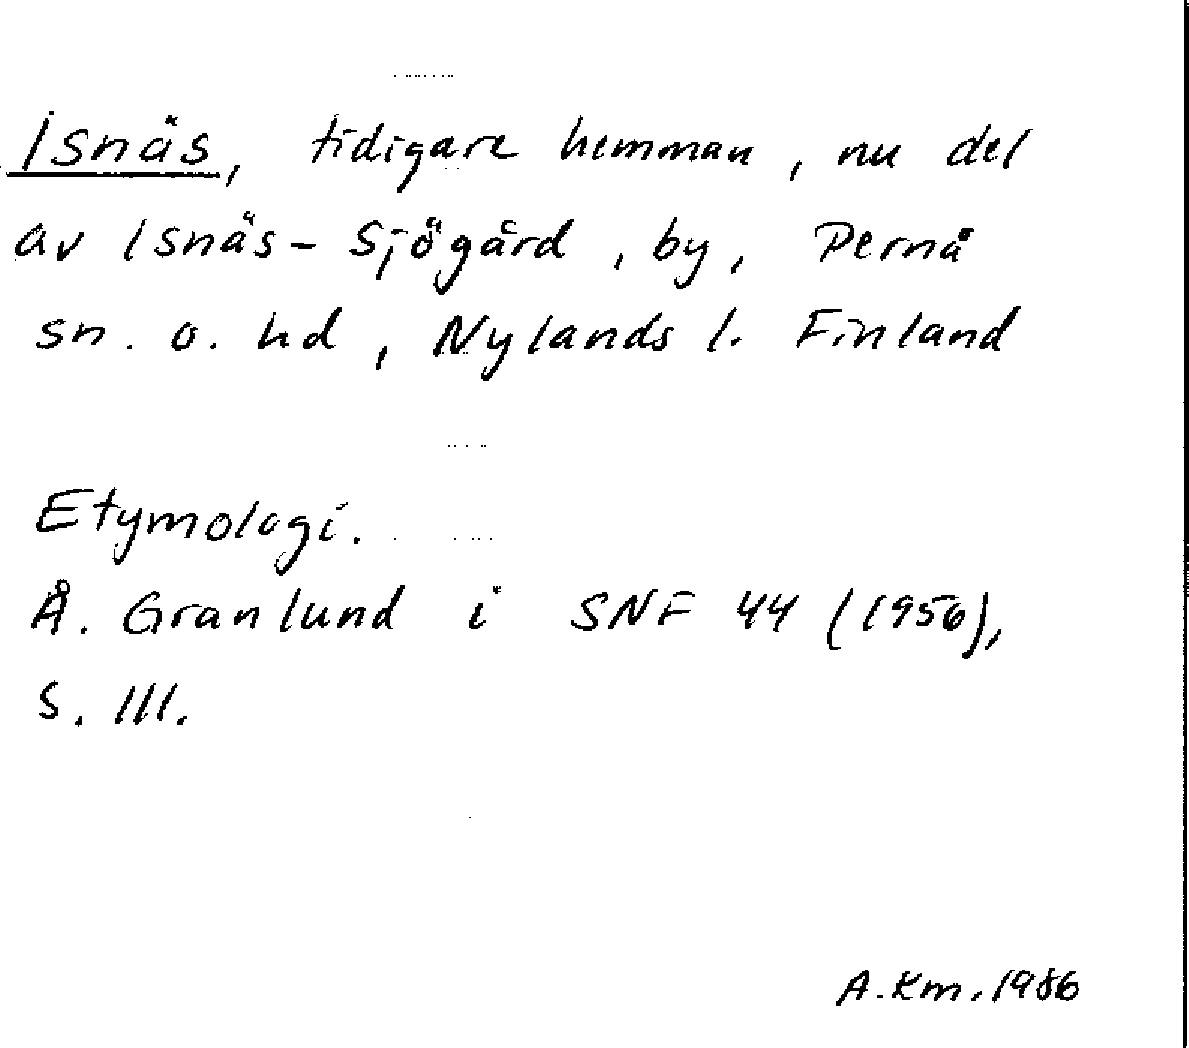 Isnäs, tidigare hemman, nu del
av Isnäs-Sjögård, by, Pernå
sn. o. hd, Nylands l. Finland
Etymologi.
Å. Granlund i SNF 44 (1956),
s. 111.
A.Km. 1986